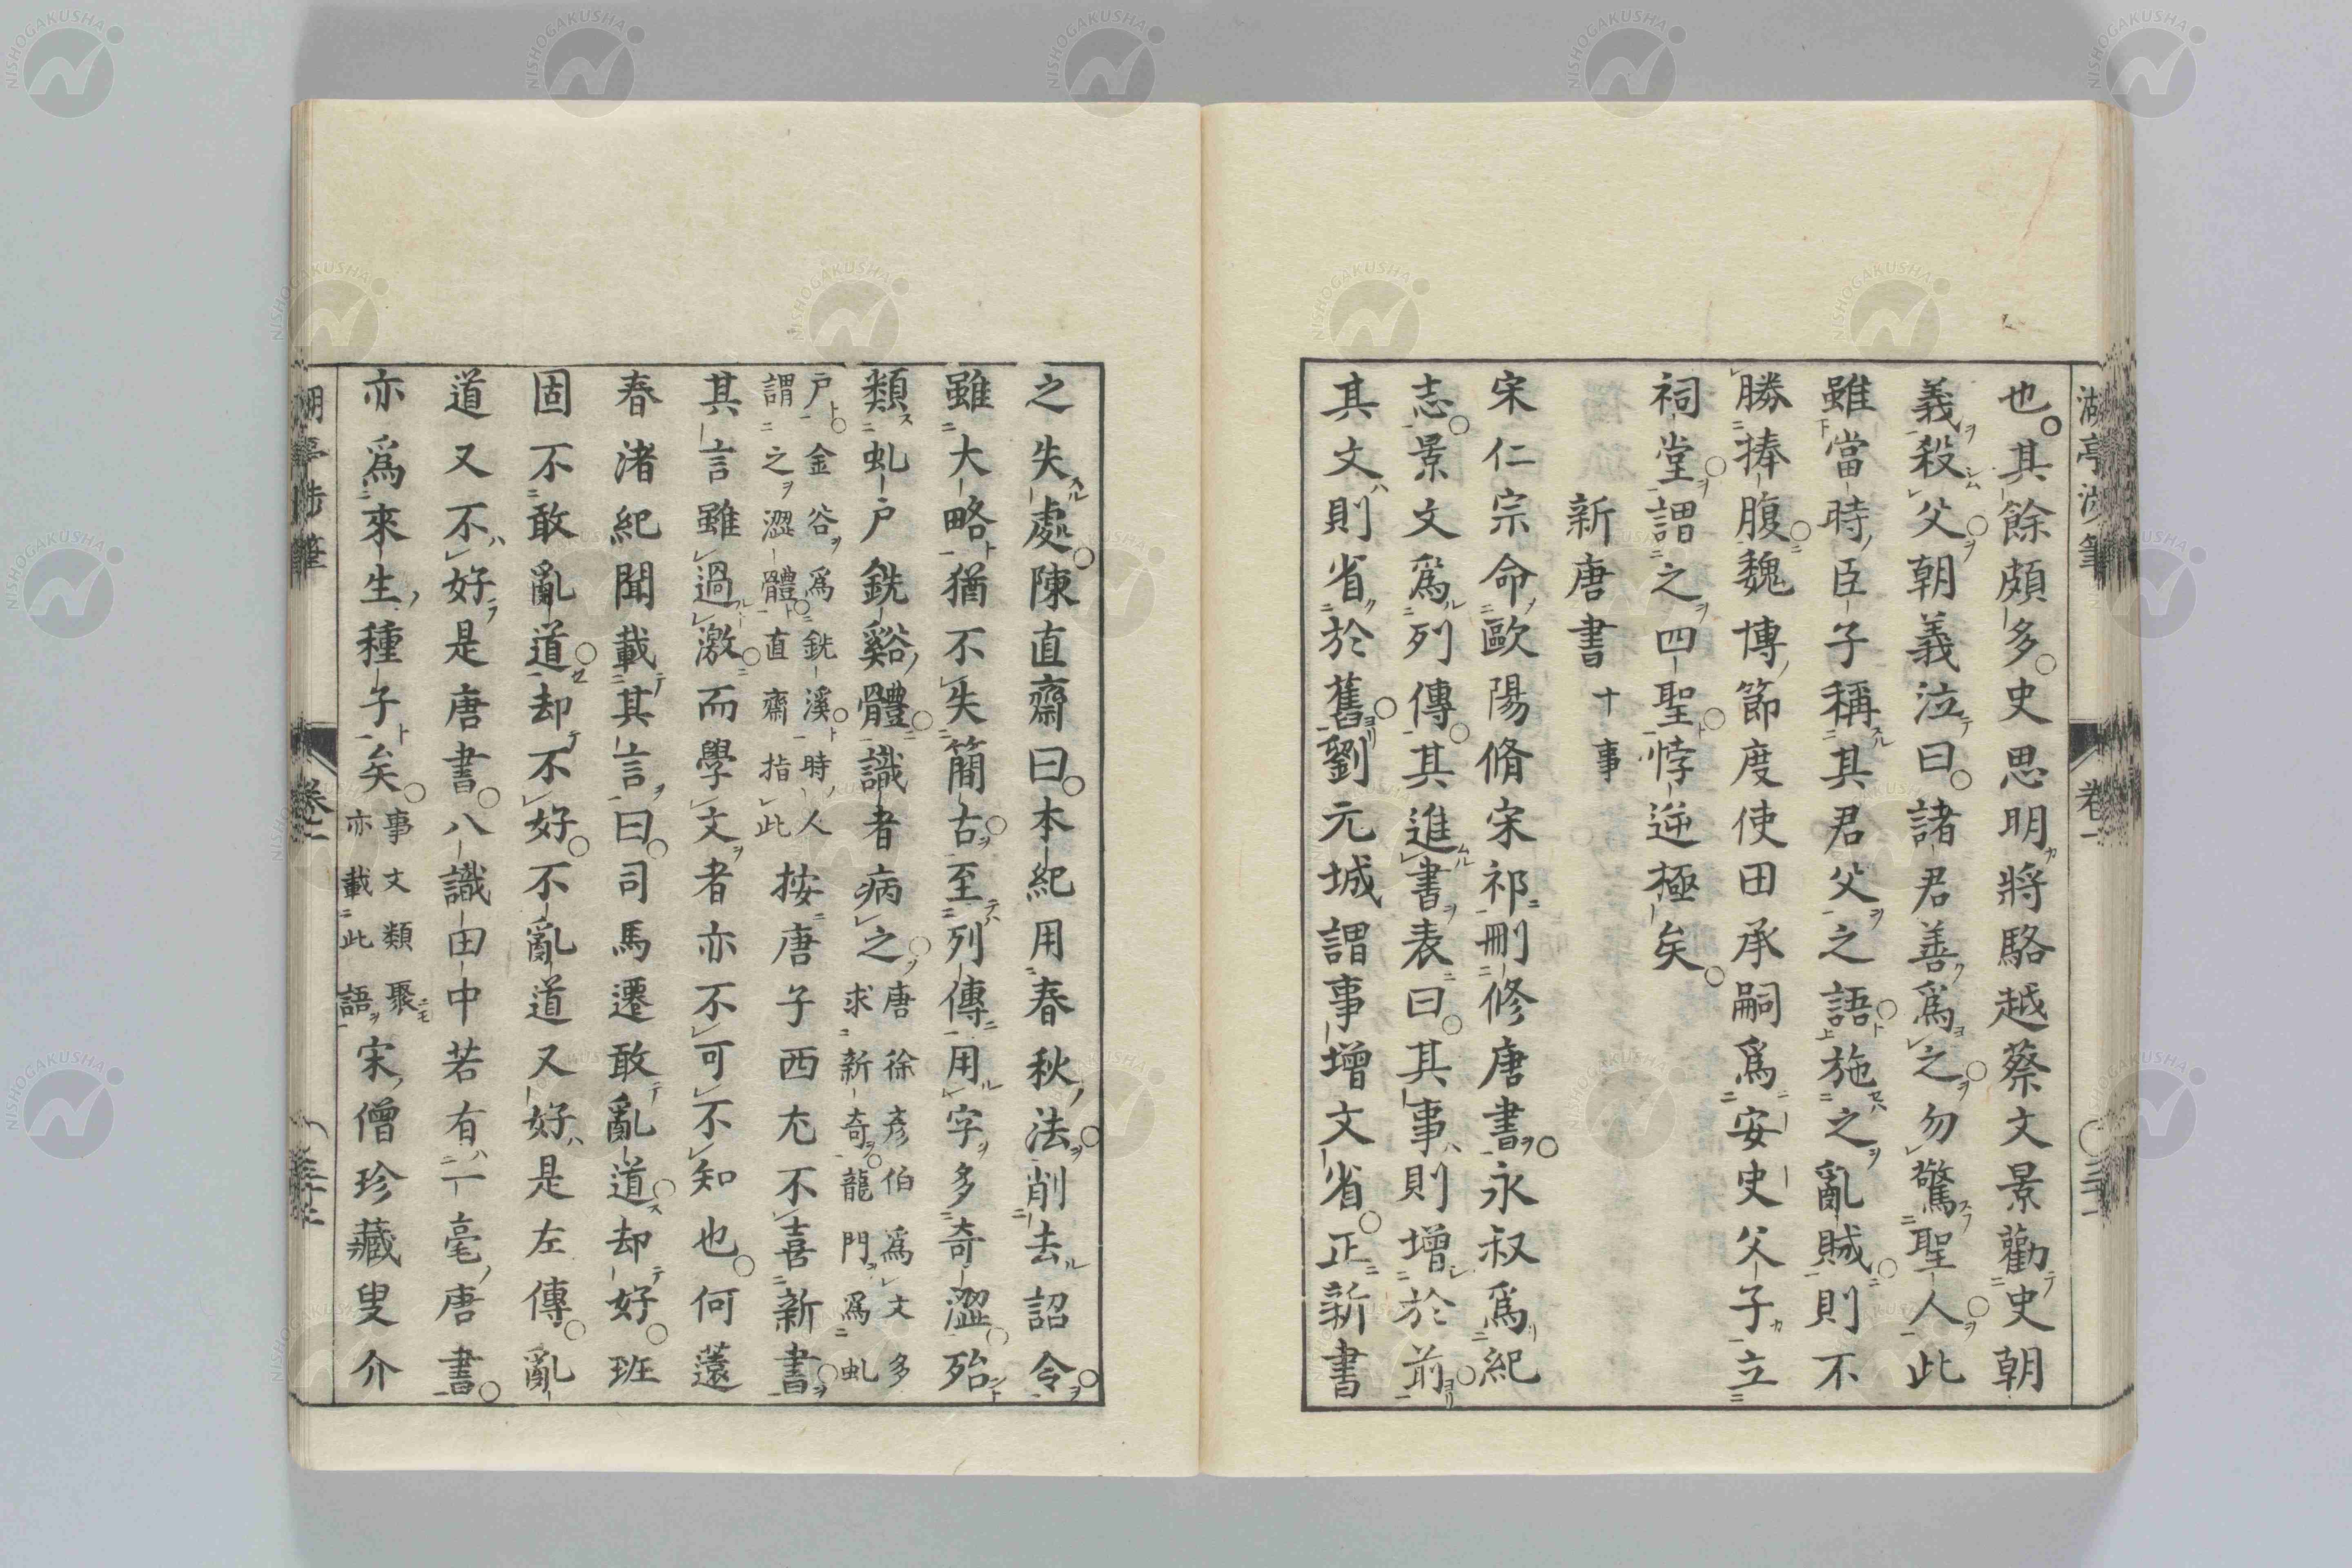 也其餘頗多史思明將駱越蔡文景勸史朝
義殺父朝義泣曰諸君善爲之勿驚聖人此
雖當時臣子稱其君父之語施之亂賊則不
勝捧腹魏博節度使田承嗣爲安史父子立
祠堂謂之四聖悖逆極矣
新唐書十事
宋仁宗命歐陽脩宋祁刪修唐書永叔爲紀
志景文爲列傳其進書表曰其事則增於前
其文則省於舊劉元城謂事增文省正新書
之失處陳直齋曰本紀用春秋法削去詔令
雖大略猶不失簡古至列傳用字多奇澀殆
類虬戶銑谿體識者病之唐徐彦伯爲文多
求新奇龍門爲虬
戶金谷爲銑溪時人
謂之澀體直齋指此按唐子西尤不喜新書
其言雖過激而學文者亦不可不知也何薳
春渚紀聞載其言曰司馬遷敢亂道却好班
固不敢亂道却不好不亂道又好是左傳亂
道又不好是唐書八識田中若有一毫唐書
亦爲來生種子矣事文類聚
亦載此語宋僧珍藏叟介
湖亭渉筆
卷一
NISHOGAKUSHA